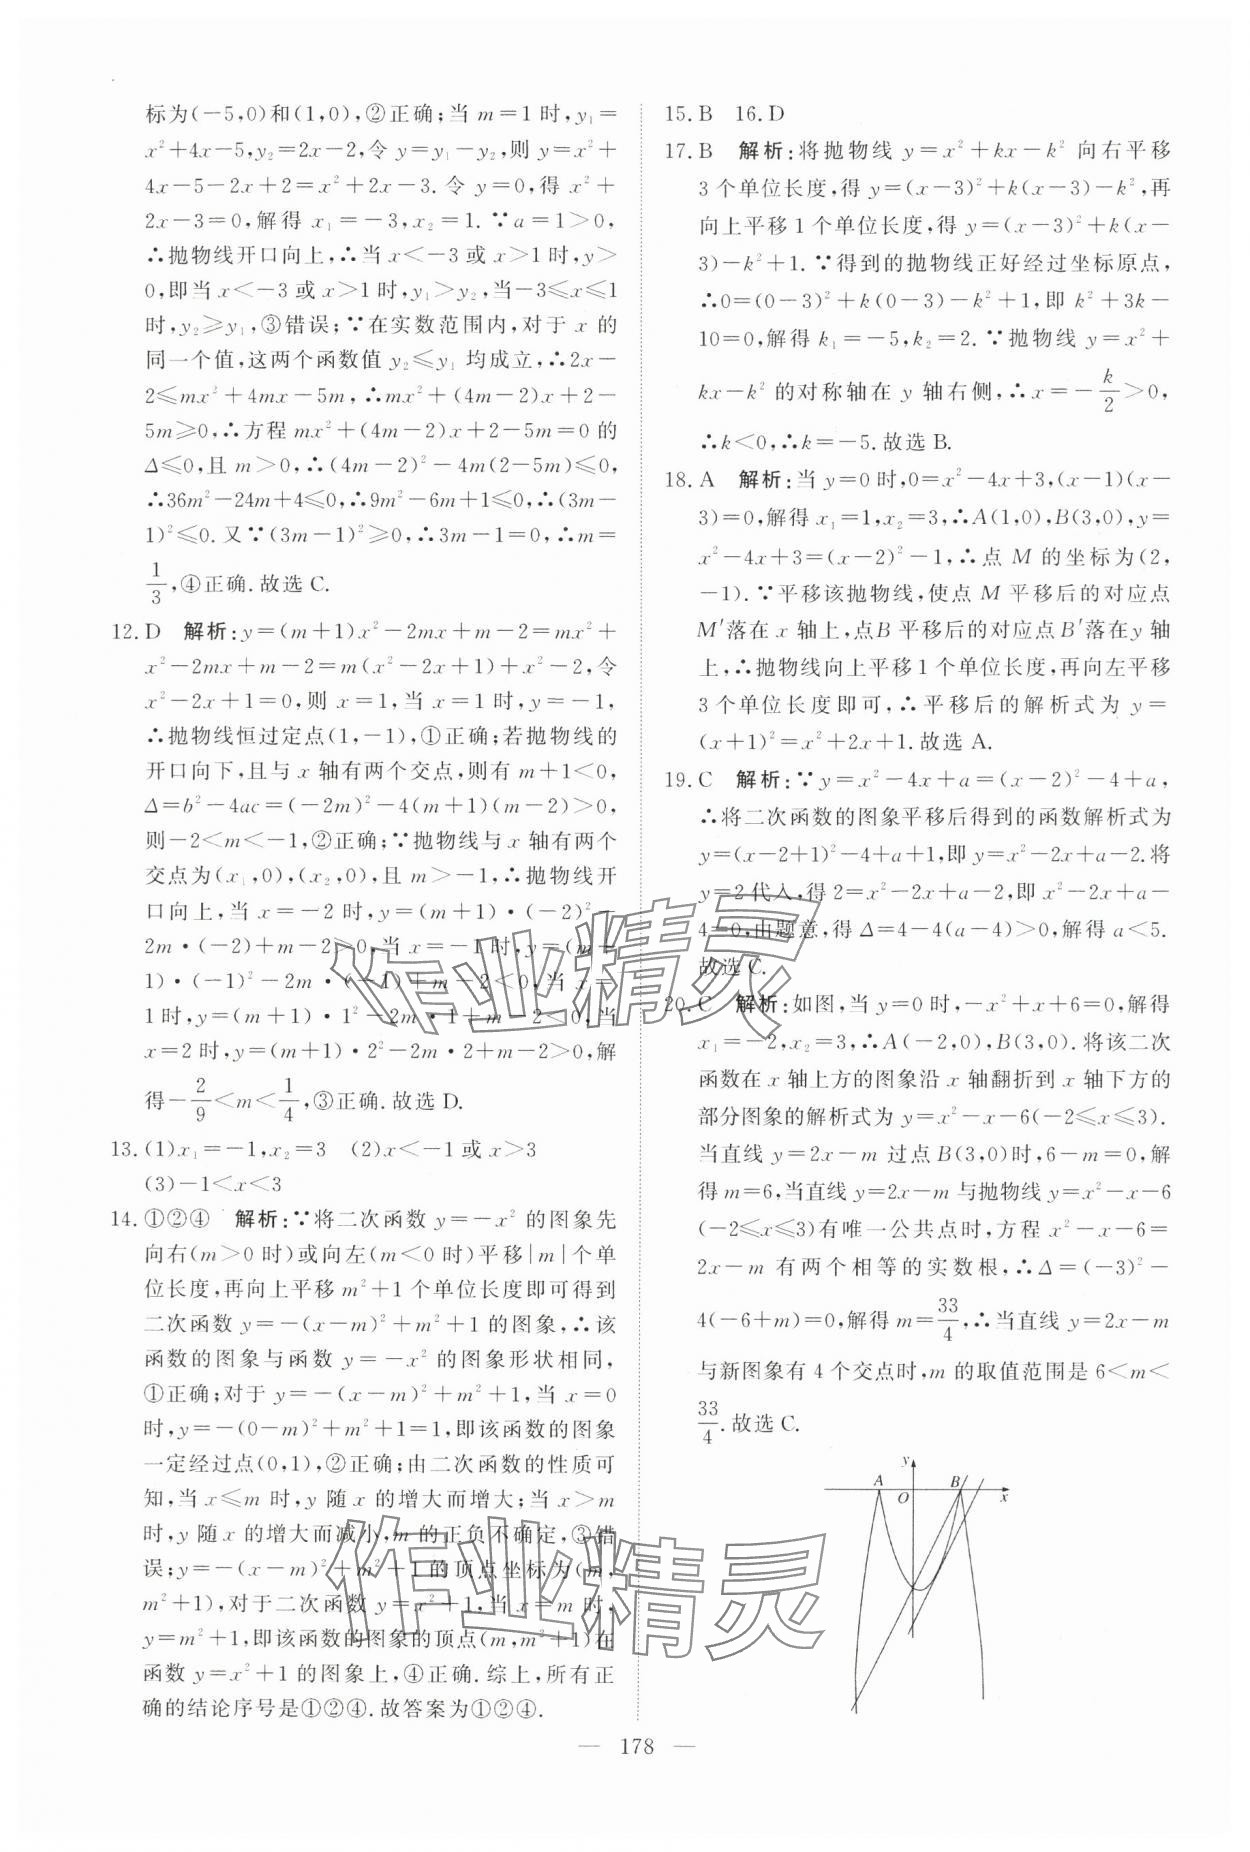 标为(-5,0)和(1,0),②正确;当 m=1 时,y₁=
x²+4x-5,y₂=2x-2,令 y=y₁-y₂,则 y=x²+
4x-5-2x+2=x²+2x-3.令 y=0,得 x²+
2x-3=0,解得 x₁=-3,x₂=1.∵a=1>0,
∴抛物线开口向上,∴当 x<-3 或 x>1时,y>
0,即当 x<-3或 x>1 时,y₁>y₂,当-3≤x≤1
时,y₂≥y₁,③错误;∵在实数范围内,对于 x 的
同一个值,这两个函数值 y₂≤y₁ 均成立,∴2x-
2≤mx²+4mx-5m,∴mx²+(4m-2)x+2-
5m≥0,∴方程 mx²+(4m-2)x+2-5m=0 的
Δ≤0,且 m>0,∴(4m-2)²-4m(2-5m)≤0,
∴36m²-24m+4≤0,∴9m²-6m+1≤0,∴(3m-
1)²≤0.又∵(3m-1)²≥0,∴3m-1=0,∴m=
1/3,④正确.故选 C.
12. D 解析:y=(m+1)x²-2mx+m-2=mx²+
x²-2mx+m-2=m(x²-2x+1)+x²-2,令
x²-2x+1=0,则 x=1,当 x=1 时,y=-1,
∴抛物线恒过定点(1,-1),①正确;若抛物线的
开口向下,且与 x 轴有两个交点,则有 m+1<0,
Δ=b²-4ac=(-2m)²-4(m+1)(m-2)>0,
则-2<m<-1,②正确;∵抛物线与 x 轴有两个
交点为(x₁,0),(x₂,0),且 m>-1,∴抛物线开
口向上,当 x=-2 时,y=(m+1)·(-2)²-
2m·(-2)+m-2>0,当 x=-1 时,y=(m+
1)·(-1)²-2m·(-1)+m-2<0,当 x=
1时,y=(m+1)·1²-2m·1+m-2<0,当
x=2 时,y=(m+1)·2²-2m·2+m-2>0,解
得-2/9<m<1/4,③正确.故选 D.
13. (1)x₁=-1,x₂=3 (2)x<-1 或 x>3
(3)-1<x<3
14. ①②④ 解析:∵将二次函数 y=-x² 的图象先
向右(m>0 时)或向左(m<0 时)平移|m|个单
位长度,再向上平移 m²+1 个单位长度即可得到
二次函数 y=-(x-m)²+m²+1 的图象,∴该
函数的图象与函数 y=-x² 的图象形状相同,
①正确;对于 y=-(x-m)²+m²+1,当 x=0
时,y=-(0-m)²+m²+1=1,即该函数的图象
一定经过点(0,1),②正确;由二次函数的性质可
知,当 x≤m 时,y 随 x 的增大而增大;当 x>m
时,y 随 x 的增大而减小,m 的正负不确定,③错
误;y=-(x-m)²+m²+1 的顶点坐标为(m,
m²+1),对于二次函数 y=x²+1,当 x=m 时,
y=m²+1,即该函数的图象的顶点(m,m²+1)在
函数 y=x²+1 的图象上,④正确.综上,所有正
确的结论序号是①②④.故答案为①②④.
15. B 16. D
17. B 解析:将抛物线 y=x²+kx-k² 向右平移
3 个单位长度,得 y=(x-3)²+k(x-3)-k²,再
向上平移 1 个单位长度,得 y=(x-3)²+k(x-
3)-k²+1.∵得到的抛物线正好经过坐标原点,
∴0=(0-3)²+k(0-3)-k²+1,即 k²+3k-
10=0,解得 k₁=-5,k₂=2.∵抛物线 y=x²+
kx-k² 的对称轴在 y 轴右侧,∴x=-k/2>0,
∴k<0,∴k=-5.故选 B.
18. A 解析:当 y=0 时,0=x²-4x+3,(x-1)(x-
3)=0,解得 x₁=1,x₂=3,∴A(1,0),B(3,0),y=
x²-4x+3=(x-2)²-1,∴点 M 的坐标为(2,
-1).∵平移该抛物线,使点 M 平移后的对应点
M′落在 x 轴上,点B 平移后的对应点B′落在y 轴
上,∴抛物线向上平移 1 个单位长度,再向左平移
3 个单位长度即可,∴平移后的解析式为 y=
(x+1)²=x²+2x+1.故选 A.
19. C 解析:∵y=x²-4x+a=(x-2)²-4+a,
∴将二次函数的图象平移后得到的函数解析式为
y=(x-2+1)²-4+a+1,即 y=x²-2x+a-2.将
y=2代入,得 2=x²-2x+a-2,即 x²-2x+a-
4=0,由题意,得 Δ=4-4(a-4)>0,解得 a<5.
故选 C.
20. C 解析:如图,当 y=0 时,-x²+x+6=0,解得
x₁=-2,x₂=3,∴A(-2,0),B(3,0).将该二次
函数在 x 轴上方的图象沿 x 轴翻折到 x 轴下方的
部分图象的解析式为 y=x²-x-6(-2≤x≤3).
当直线 y=2x-m 过点 B(3,0)时,6-m=0,解
得 m=6,当直线 y=2x-m 与抛物线 y=x²-x-6
(-2≤x≤3)有唯一公共点时,方程 x²-x-6=
2x-m 有两个相等的实数根,∴Δ=(-3)²-
4(-6+m)=0,解得 m=33/4,∴当直线 y=2x-m
与新图象有 4 个交点时,m 的取值范围是 6<m<
33/4.故选 C.
y
A
B
O
x
作业精灵
作业精灵
— 178 —